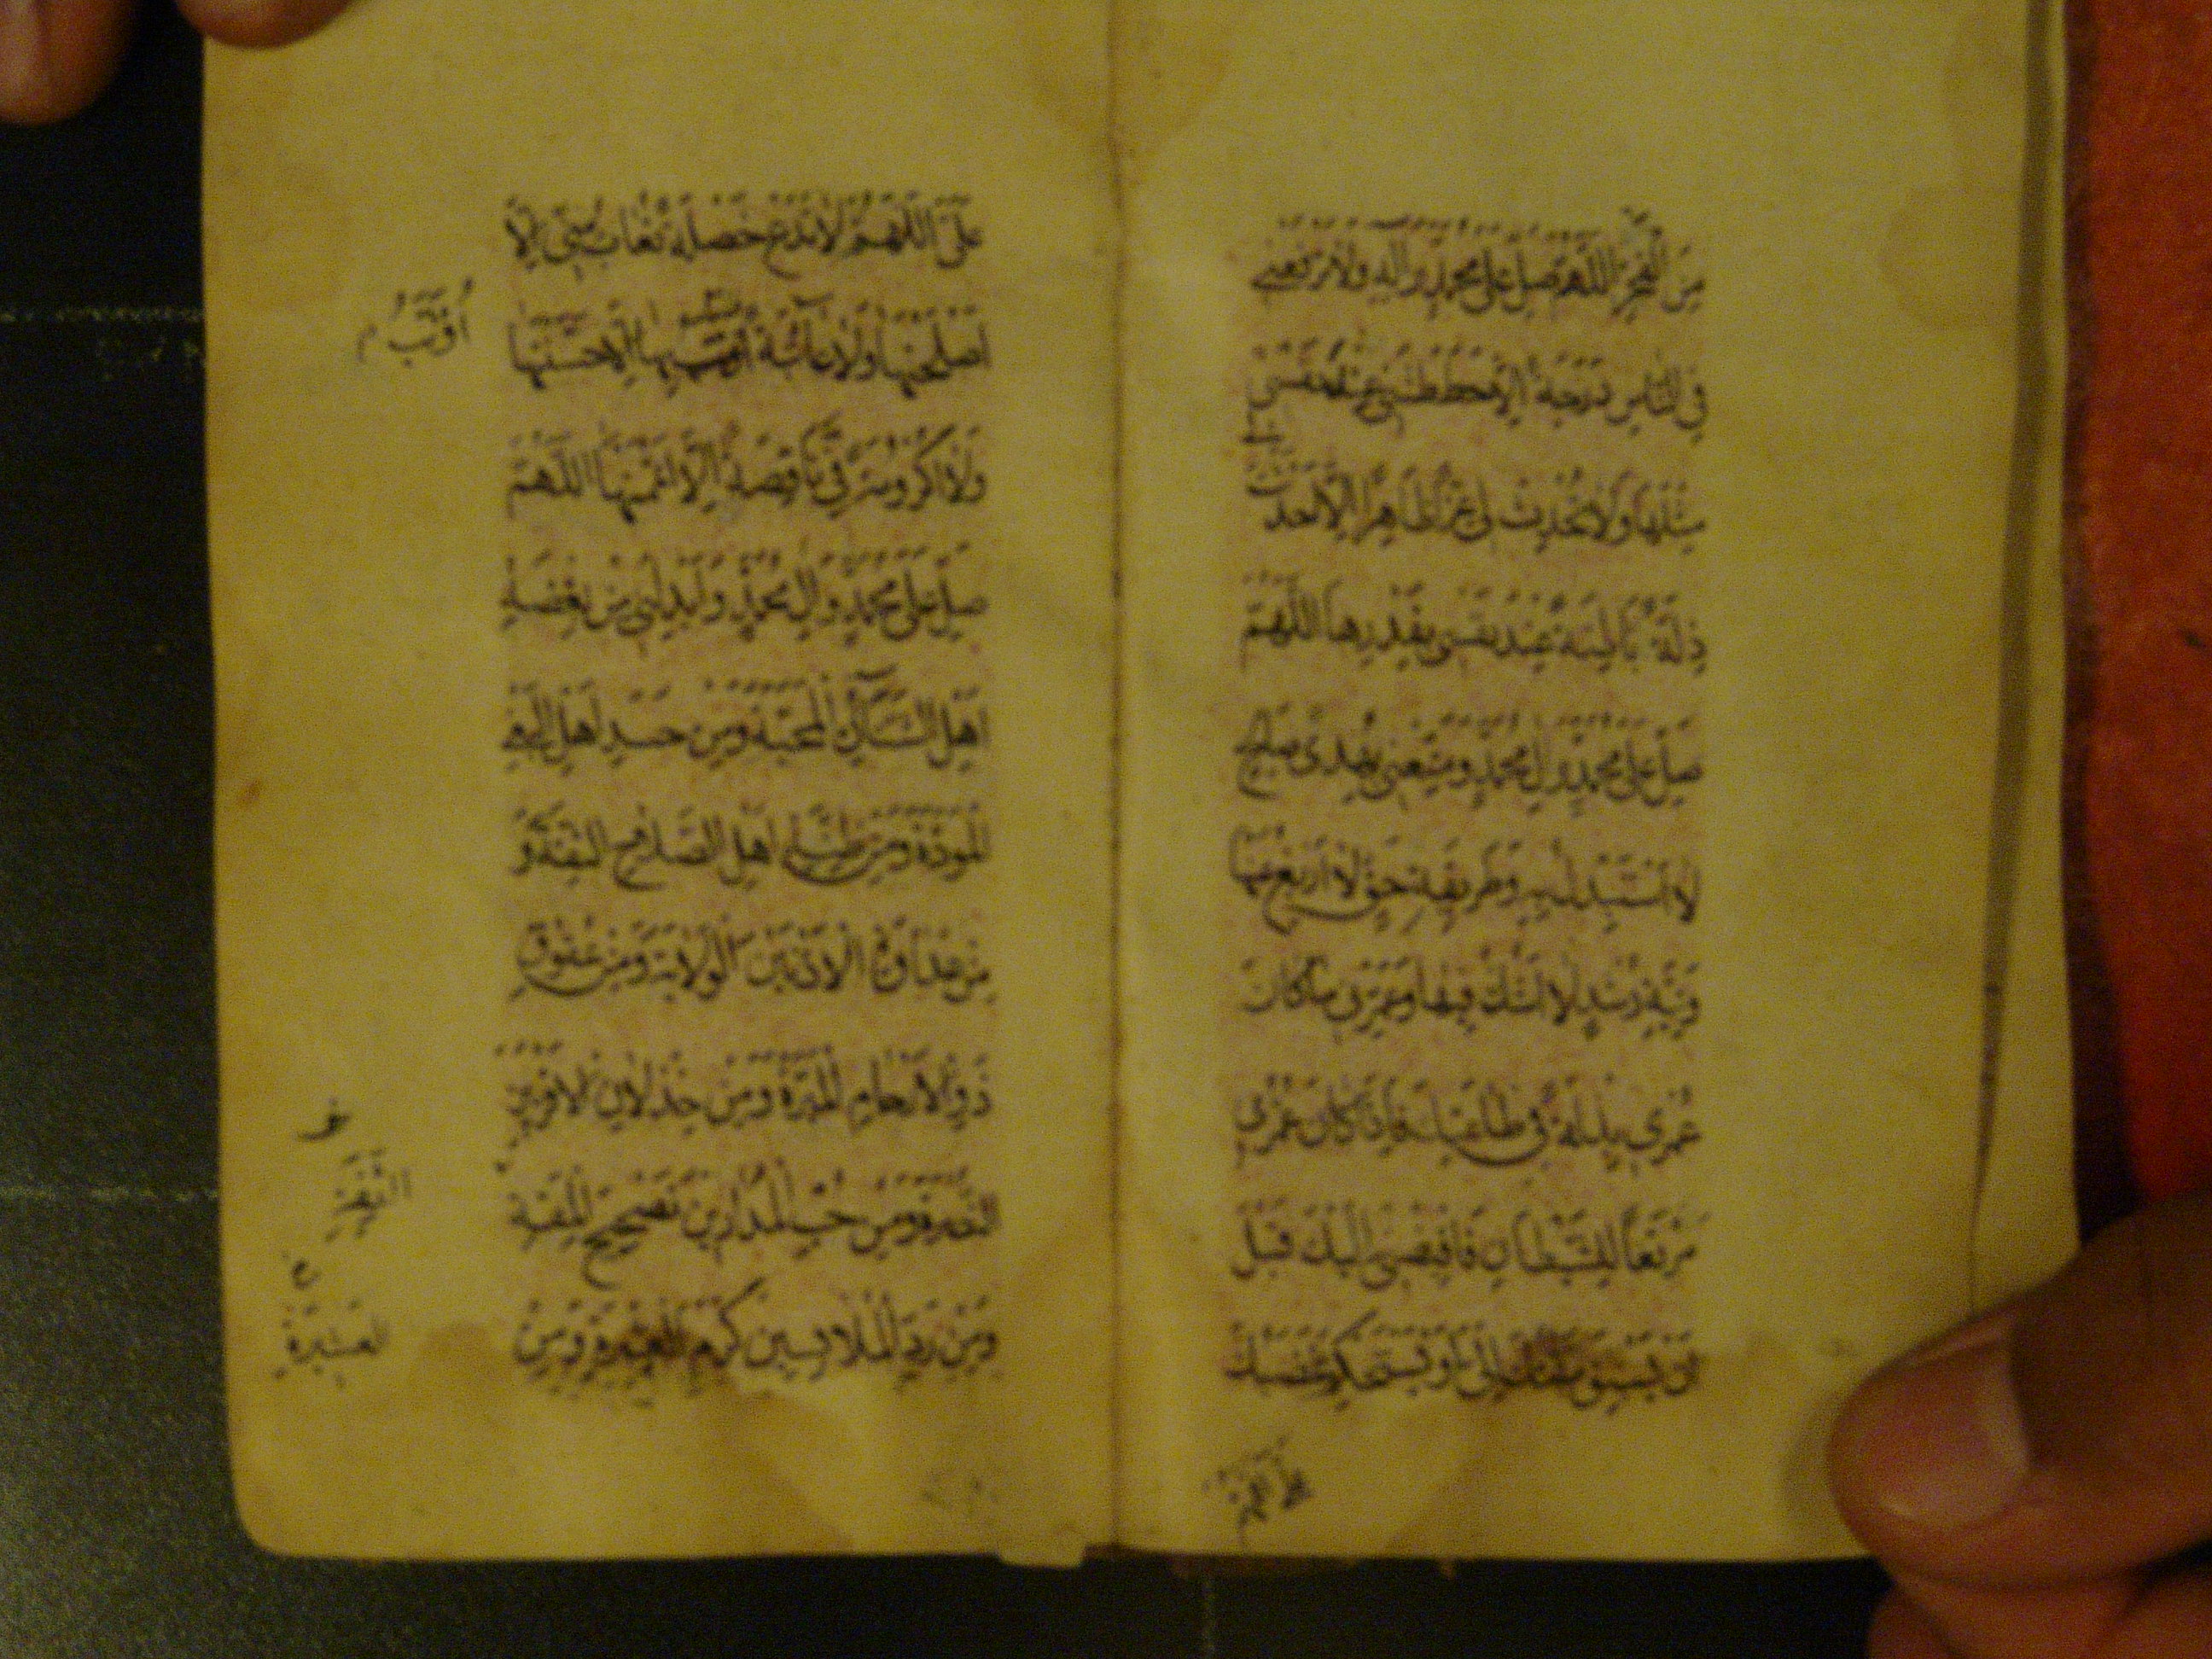 مِنَ الْفَخْرِ اَللّٰهُمَّ صَلِّ عَلٰى مُحَمَّدٍ وَاٰلِهِ وَلَا تَرْفَعْنِي
فِي النَّاسِ دَرَجَةً اِلَّا حَطَطْتَنِي عِنْدَ نَفْسِي
مِثْلَهَا وَلَا تُحْدِثْ لِي عِزًّا ظَاهِرًا اِلَّا اَحْدَثْتَ
ذِلَّةً بَاطِنَةً عِنْدَ نَفْسِي بِقَدَرِهَا اَللّٰهُمَّ
صَلِّ عَلٰى مُحَمَّدٍ وَاٰلِ مُحَمَّدٍ وَمَتِّعْنِي بِهُدًى صَالِحٍ
لَا اَسْتَبْدِلُ بِهِ وَطَرِيقَةِ حَقٍّ لَا اَزِيغُ عَنْهَا
وَنِيَّةِ رُشْدٍ لَا اَشُكُّ فِيهَا وَعَمِّرْنِي مَا كَانَ
عُمْرِي بِذْلَةً فِي طَاعَتِكَ فَاِذَا كَانَ عُمْرِي
مَرْتَعًا لِلشَّيْطَانِ فَاقْبِضْنِي اِلَيْكَ قَبْلَ
اَنْ يَسْبِقَ مَقْتُكَ اِلَيَّ اَوْ يَسْتَحْكِمَ غَضَبُكَ
عَلَيَّ اللّٰهُمَّ
عَلَيَّ اَللّٰهُمَّ لَا تَدَعْ خَصْلَةً تُعَابُ مِنِّي اِلَّا
اَصْلَحْتَهَا وَلَا عَائِبَةً اُؤَنَّبُ بِهَا اِلَّا حَسَّنْتَهَا
اُؤَنَّبُ
وَلَا اُكْرُومَةً فِيَّ نَاقِصَةً اِلَّا اَتْمَمْتَهَا اَللّٰهُمَّ
صَلِّ عَلٰى مُحَمَّدٍ وَاٰلِ مُحَمَّدٍ وَاَبْدِلْنِي مِنْ بِغْضَةِ
اَهْلِ الشَّنَاٰنِ الْمَحَبَّةَ وَمِنْ حَسَدِ اَهْلِ الْبَغْيِ
الْمَوَدَّةَ وَمِنْ ظِنَّةِ اَهْلِ الصَّلَاحِ الثِّقَةَ وَ
مِنْ عَدَاوَةِ الْاَدْنَيْنَ الْوَلَايَةَ وَمِنْ عُقُوقِ
ذَوِي الْاَرْحَامِ الْمَبَرَّةَ وَمِنْ خِذْلَانِ الْاَقْرَبِينَ
النُّصْرَةَ وَمِنْ حُبِّ الْمُدَارِينَ تَصْحِيحَ الْمِقَةِ
وَمِنْ رَدِّ الْمُلَابِسِينَ كَرَمَ الْعِشْرَةِ وَمِنْ
الْعِشْرَةِ